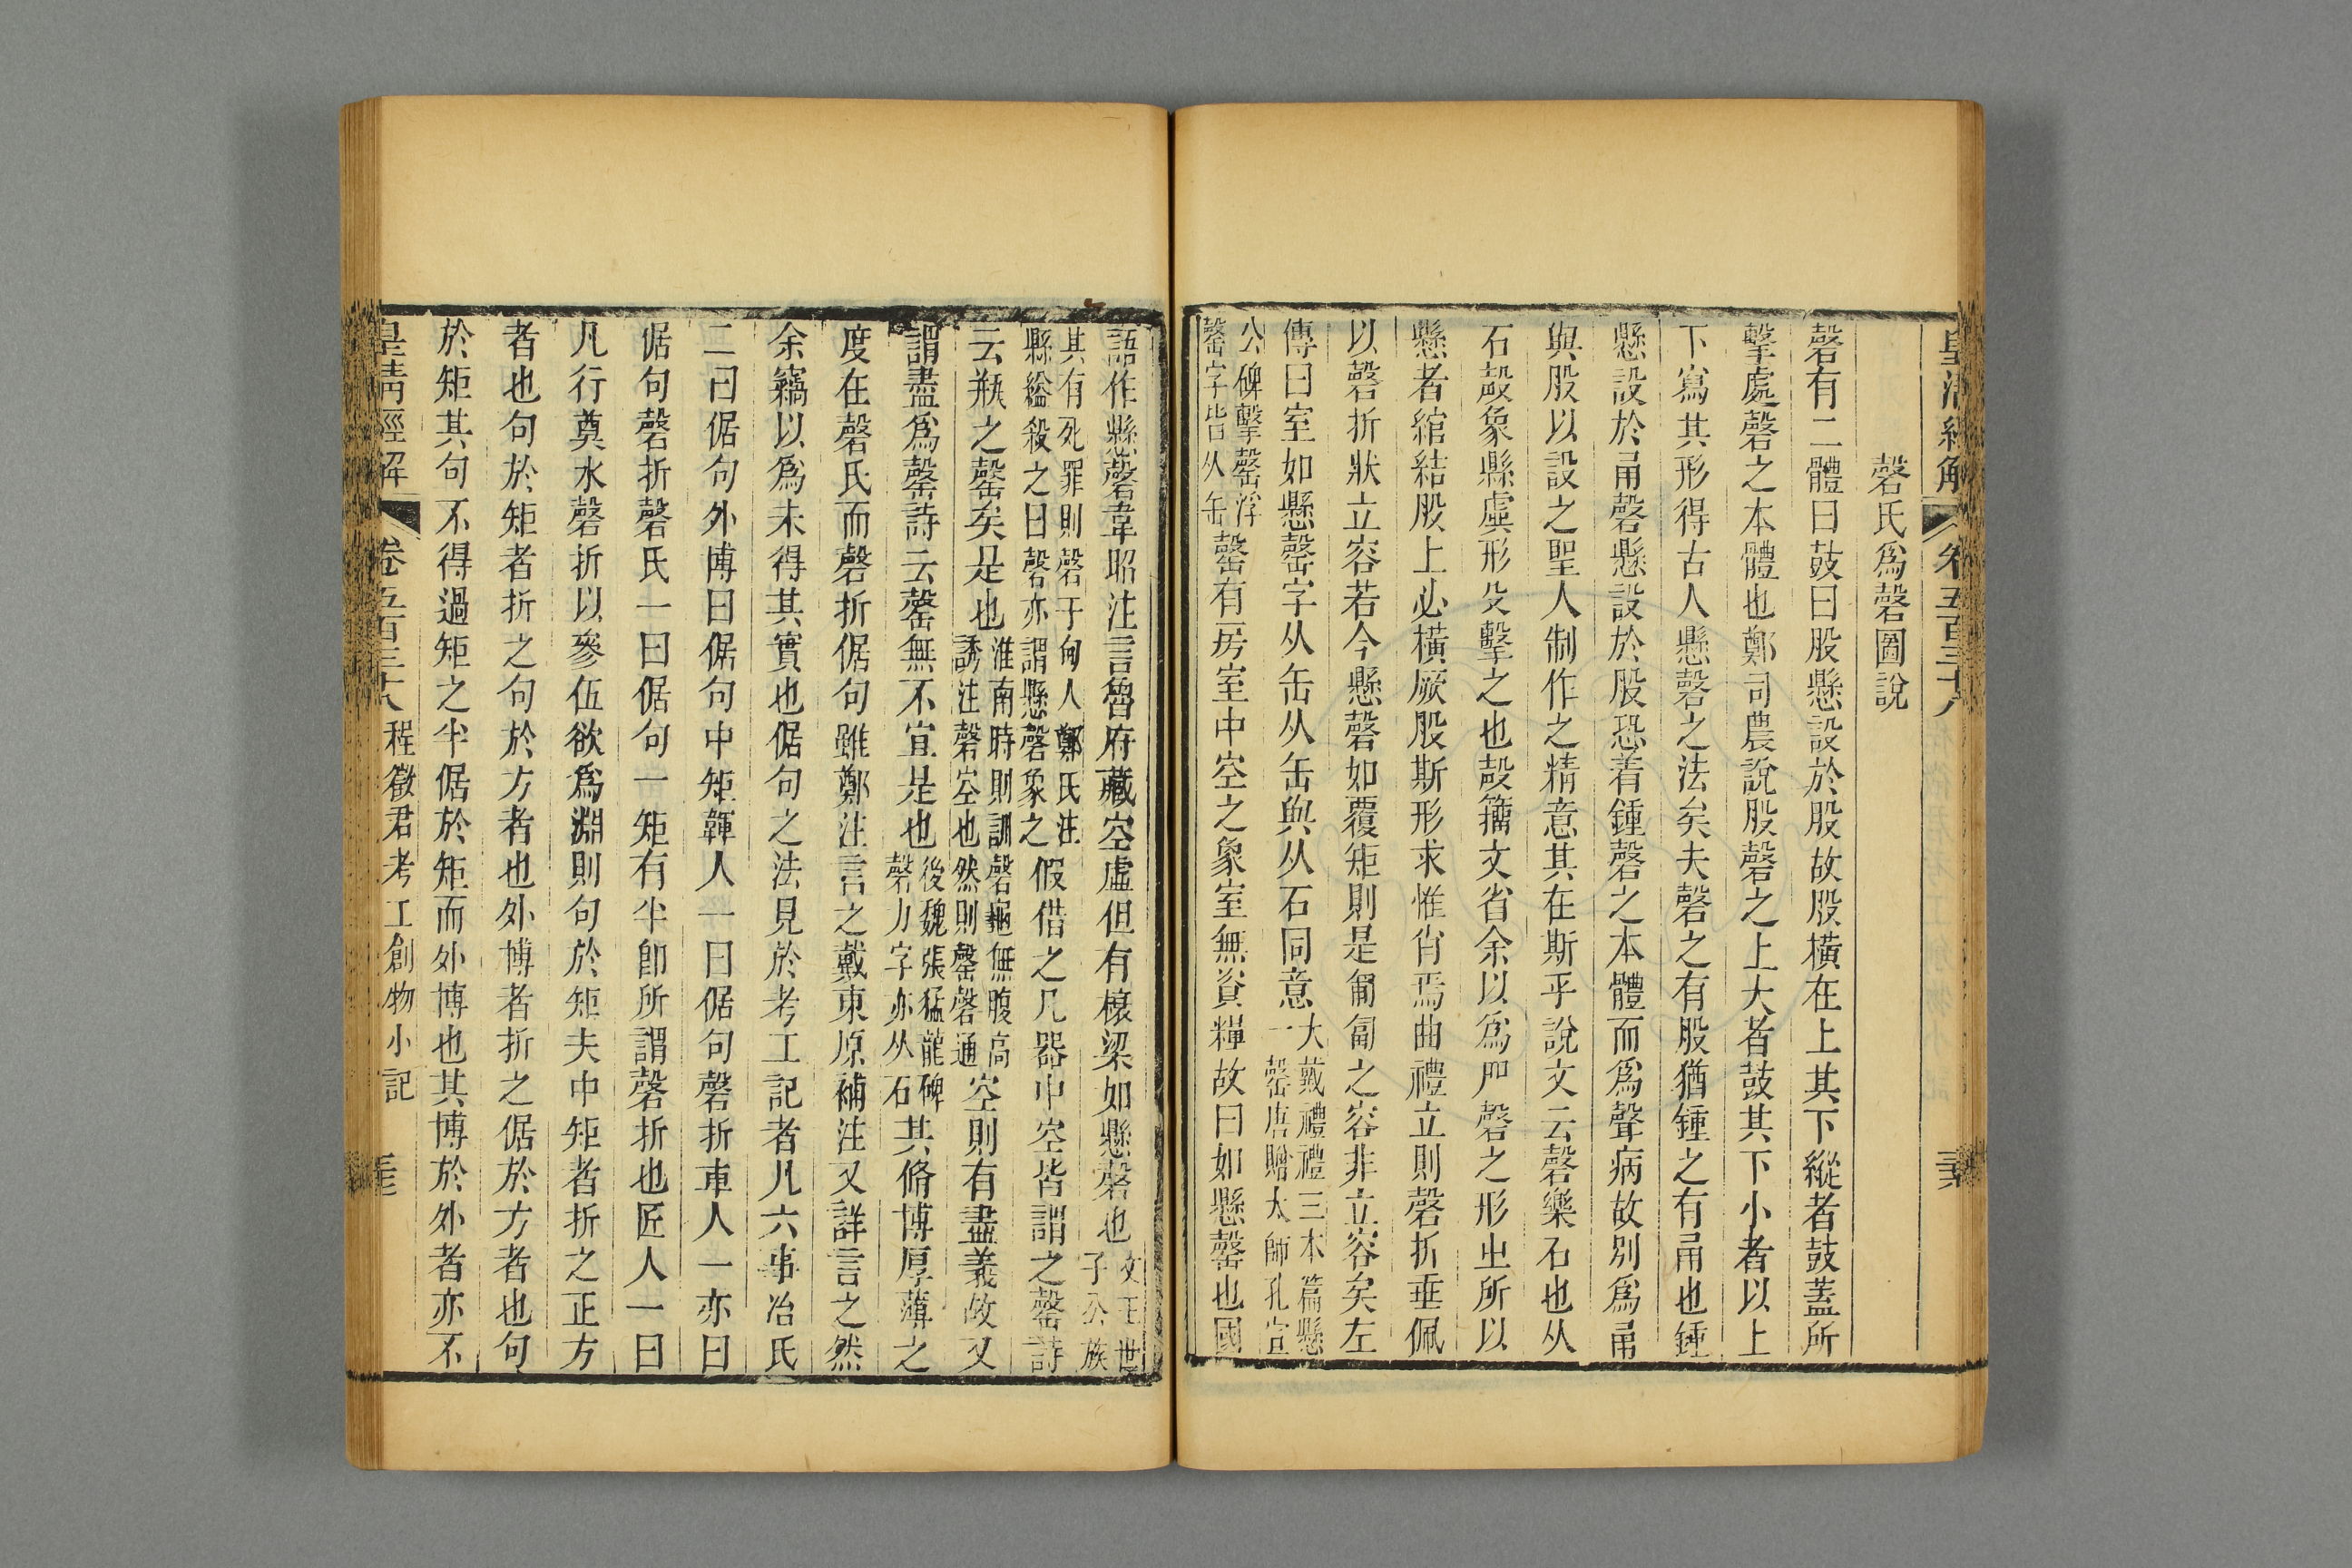 皇清經解 卷五百三十八
磬氏爲磬圖說
磬有二體曰鼓曰股懸設於股故股橫在上其下縱者鼓蓋所
擊處磬之本體也鄭司農說股磬之上大者鼓其下小者以上
下寫其形得古人懸磬之法矣夫磬之有股猶鍾之有甬也鍾
懸設於甬磬懸設於股恐着鍾磬之本體而爲聲病故別爲甬
與股以設之聖人制作之精意其在斯乎說文云磬樂石也从
石殸象縣虡形殳擊之也殸籒文省余以爲𡰪磬之形出所以
懸者綰結股上必橫厥股斯形求惟肖焉曲禮立則磬折垂佩
以磬折狀立容若今懸磬如覆矩則是匍匐之容非立容矣左
傳曰室如懸罄字从缶从缶與从石同意
大戴禮禮三本篇懸
一罄唐贈太師孔宣
公碑擊罄浮
罄字皆从缶
罄有房室中空之象室無資糧故曰如懸罄也國
語作懸磬韋昭注言魯府藏空虛但有榱梁如懸磬也
文王世
子公族
其有死罪則磬于甸人鄭氏注
縣縊殺之曰磬亦謂懸磬象之
假借之凡器中空皆謂之罄詩
云瓶之罄矣是也
淮南時則訓磬龜無腹高
誘注磬空也然則罄磬通
空則有盡義故又
謂盡爲罄詩云罄無不宜是也
後魏張猛龍碑
磬力字亦从石
其脩博厚薄之
度在磬氏而磬折倨句雖鄭注言之戴東原補注又詳言之然
余竊以爲未得其實也倨句之法見於考工記者凡六事冶氏
二曰倨句外博曰倨句中矩韗人一曰倨句磬折車人一亦曰
倨句磬折磬氏一曰倨句一矩有半卽所謂磬折也匠人一曰
凡行奠水磬折以參伍欲爲淵則句於矩夫中矩者折之正方
者也句於矩者折之句於方者也外博者折之倨於方者也句
於矩其句不得過矩之半倨於矩而外博也其博於外者亦不
皇清經解 卷五百三十八 程徵君考工創物小記